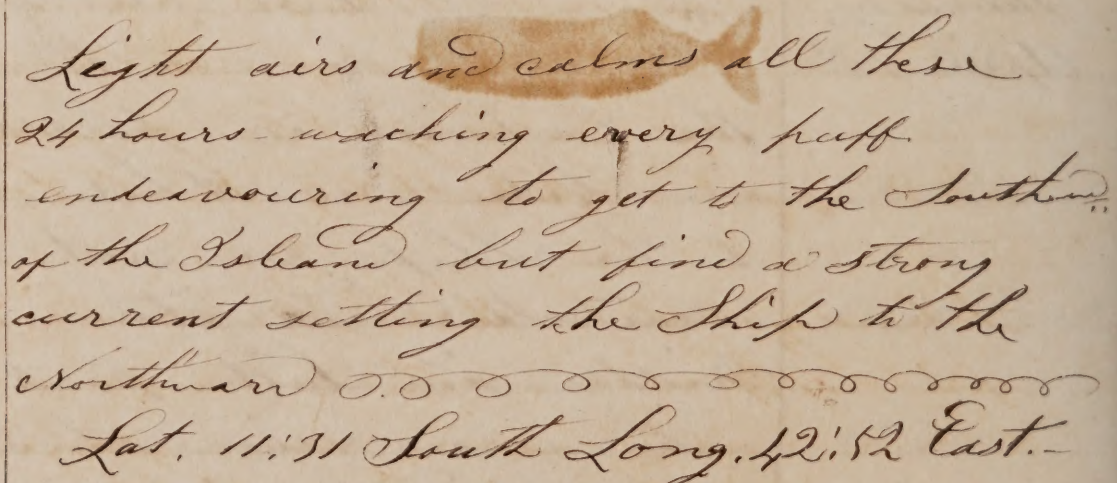 Light airs and calms all these
24 hours - waching every puff.
endeavouring to get to the Southwd
of the Island but find a strong
current setting the Ship to the
Northward
Lat. 11:31 South Long. 42:52 East.-